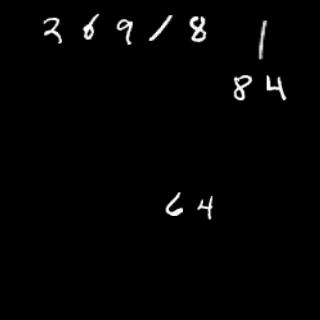 269/8 1
84
64